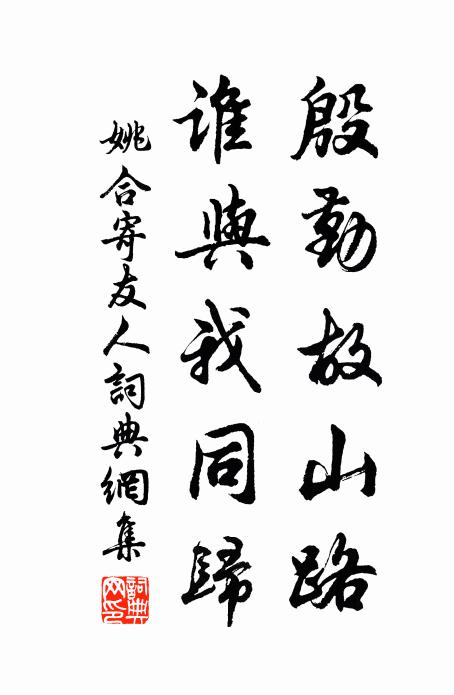 殷勤故山路
誰與我同歸
姚合寄友人詞典網集
詞典網印